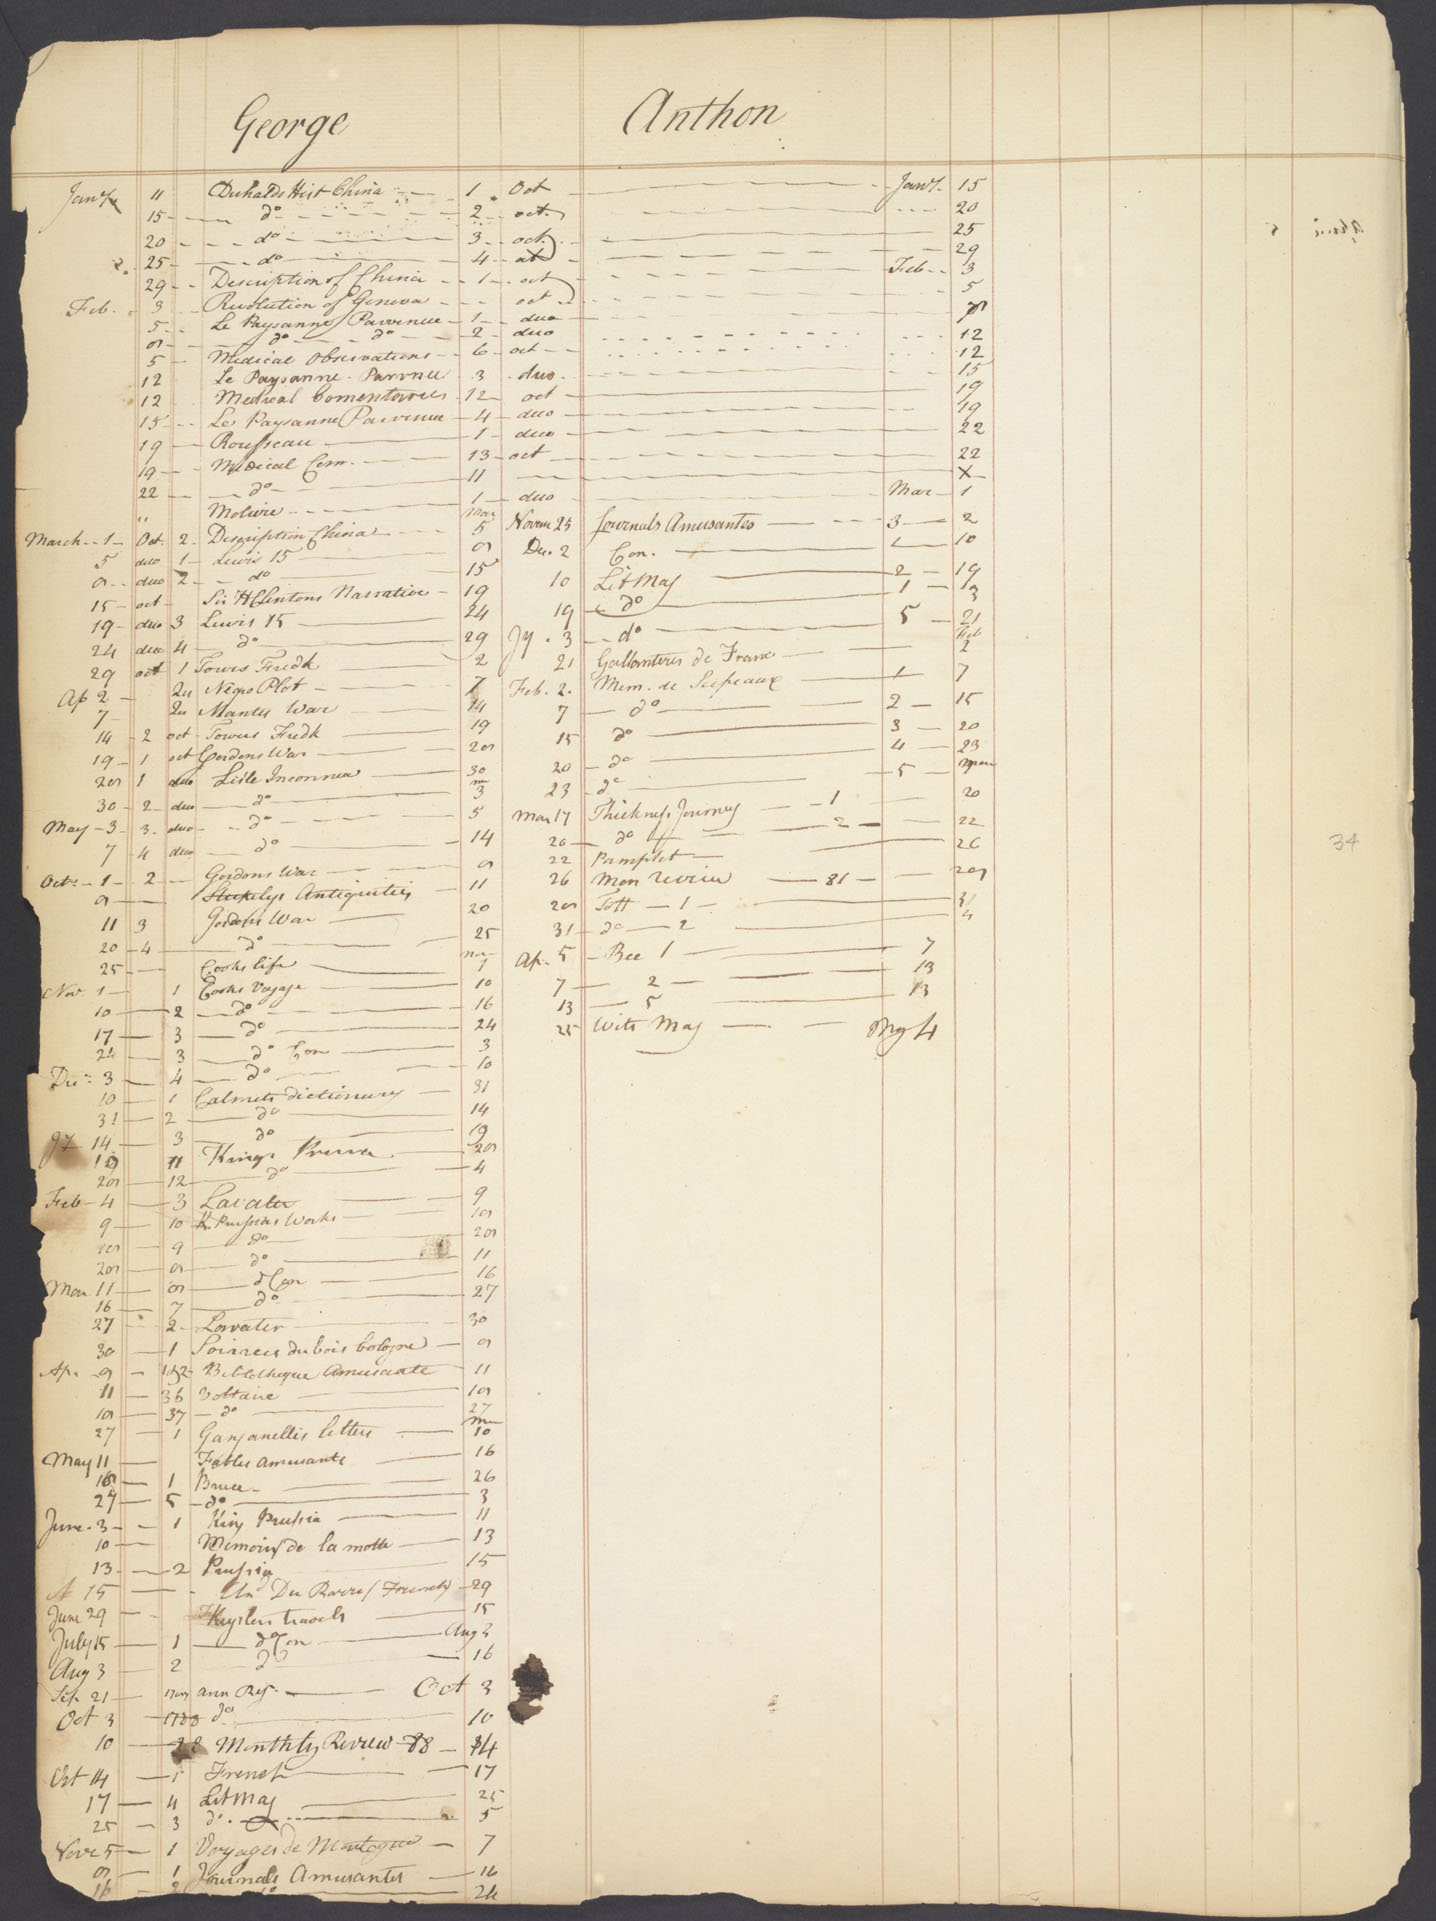 George Anthon
Jany. 11 Duhalds Hist China 1 Oct Jany. 15
15 do 2 oct. 20
20 do 3 oct. 25
25 do 4 oct 29
29 Description of China 1 oct Feb 3
Feb. 3 Revolution of Geneva oct 5
5 Le Paysanne Parvenue 1 duo
9 do do 2 duo 12
5 Medical Observations 6 oct 12
12 Le Paysanne Parvnue 3 duo 15
12 Medical Comentaries 12 oct 19
15 Le Paysanne Parvenue 4 duo 19
19 Rousseau 1 duo 22
19 Medical Com. 13 oct 22
22 do 11 X
" Moliere 1 duo Mar 1
March 1 Oct. 2 Description China Mar 5
5 duo 1 Lewis 15 9
9 duo 2 do 15
15 oct Sir H Clintons Narrative 19
19 duo 3 Lewis 15 24
24 duo 4 do 29
29 oct 1 Towers Fredk 2
Ap 2 Qu Negro Plot 7
7 Qu Mantes War 14
14 2 oct Towers Fredk 19
19 1 oct Gordons War 29
29 1 duo Lisle Inconnue 30
30 2 duo do m 3
May 3 3 duo do 5
7 4 duo do 14
Oct. 1 2 Gordons War 9
9 Stukelys Antiquities 11
11 3 Gordons War 20
20 4 do 25
25 Cooks life Nov 1
Nov 1 1 Cooks Voyage 10
10 2 do 16
17 3 do 24
24 3 do Con 3
Dec 3 4 do 10
10 1 Calmets dictionary 31
31 2 do 14
Jy 14 3 do 19
19 11 Kings Prussia 29
29 12 do 4
Feb 4 3 Lavater 9
9 10 K. Prussias Works 19
19 9 do 29
29 9 do 11
Mar 11 9 do Con 16
16 7 do 27
27 2 Lavater 30
30 1 Soirees du bois bologne 9
Ap. 9 1&2 Bibliotheque Amusante 11
11 36 Voltaire 19
19 37 do 27
27 1 Ganganellis letters 10
May 11 Fables amusante 16
16 1 Bruce 26
27 5 do 3
June 3 1 King Prussia 11
10 Memoirs de la motte 13
13 2 Prussia 15
15 Du Barry (French) 29
June 29 Keyslers travels 15
July 15 1 do Con Aug 3
Aug 3 2 do 16
Sep 21 Ann Reg. Oct 3
Oct 3 1788 do 10
10 Monthly Review 88 14
Oct 14 1 French 17
17 4 Lit Mag 25
25 3 do. 5
Nov 5 1 Voyages de Montague 7
9 1 Journals Amusantes 16
16 2 do 24
Novem 25 Journals Amusantes 3 2
Dec. 2 Con. 10
10 Lit Mag 2 19
19 do 1 3
Jy. 3 do 5 21
21 Gallanteries de France Feb 2
Feb. 2. Mem. de Scepeaux 1 7
7 do 2 15
15 do 3 20
20 do 4 23
23 do 5 Mar
Mar 17 Thickness Journey 1 20
20 do 2 22
22 Pamphlet 26
26 Mon Review 81 29
29 Tott 1 31
31 do 2 4
Ap. 5 Bee 1 7
7 2 13
13 5 13
25 Wits Mag My 4
34